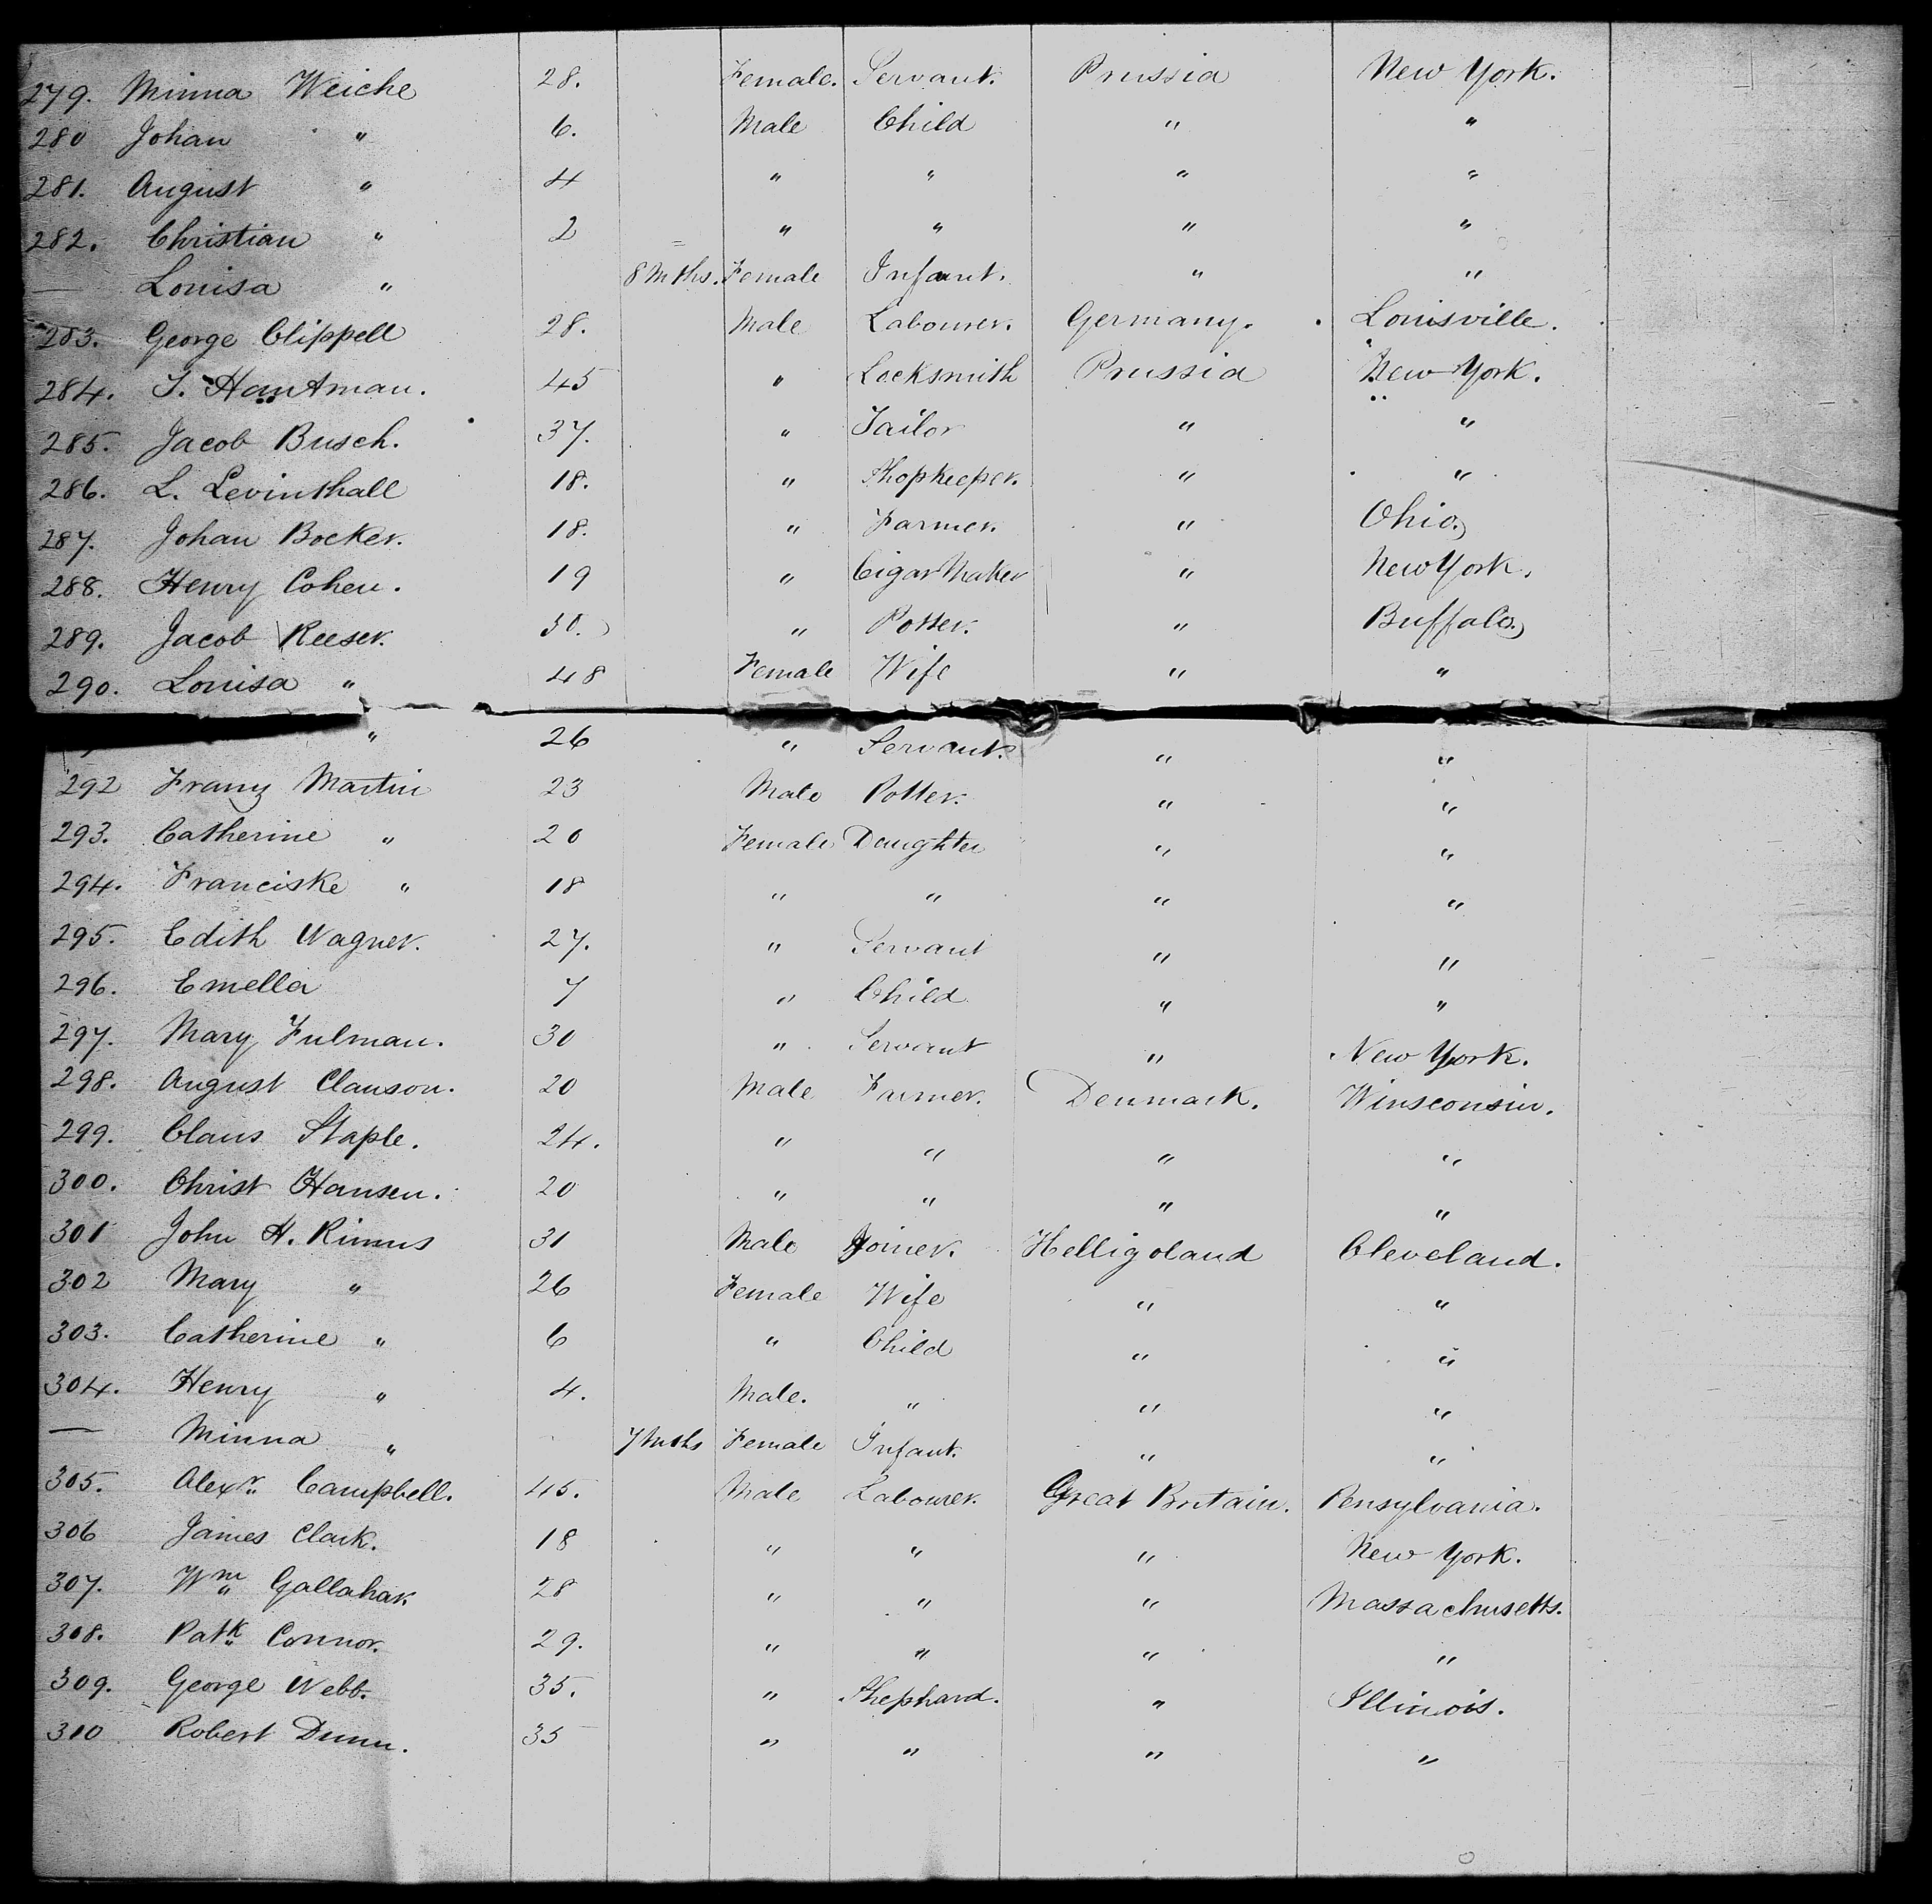 279. Minna Weiche 28. Female. Servant. Prussia New York.
280 Johan " 6. Male Child " "
281. August " 4 " " " "
282. Christian " 2 " " " "
— Louisa " 8 Mths. Female Infant. " "
283. George Clippell 28. Male Labourer. Germany. Louisville.
284. Hautman. 45 " Locksmith Prussia New York.
285. Jacob Busch. 37. " Tailor " "
286. L. Levinthall 18. " Shopkeeper. " "
287. Johan Bocker. 18. " Farmer. " Ohio.
288. Henry Cohen. 19 " Cigar Maker " New York.
289. Jacob Reeser. 30. " Potter. " Buffalo.
290. Louisa " 48 Female Wife " "
" 26 " Servant. " "
292 Franz Martin 23 Male Potter. " "
293. Catherine " 20 Female Daughter " "
294. Franciske " 18 " " " "
295. Edith Wagner. 27. " Servant " "
296. Emella 7 " Child " "
297. Mary Fulman. 30 " Servant " New York.
298. August Clauson. 20 Male Farmer. Denmark. Winsconsin.
299. Claus Staple. 24. " " " "
300. Christ Hansen. 20 " " " "
301 John H. Rimus 31 Male Joiner. Helligoland Cleveland.
302 Mary " 26 Female Wife " "
303. Catherine " 6 " Child " "
304. Henry " 4. Male. " " "
— Minna " 7 Mths Female Infant. " "
305. Alexr. Campbell. 45. Male Labourer. Great Britain. Pensylvania.
306 James Clark. 18 " " " New York.
307. Wm Gallahar. 28 " " " Massachusetts.
308. Patk Connor. 29. " " " "
309. George Webb. 35. " Shephard. " Illinois.
310 Robert Dunn. 35 " " " "